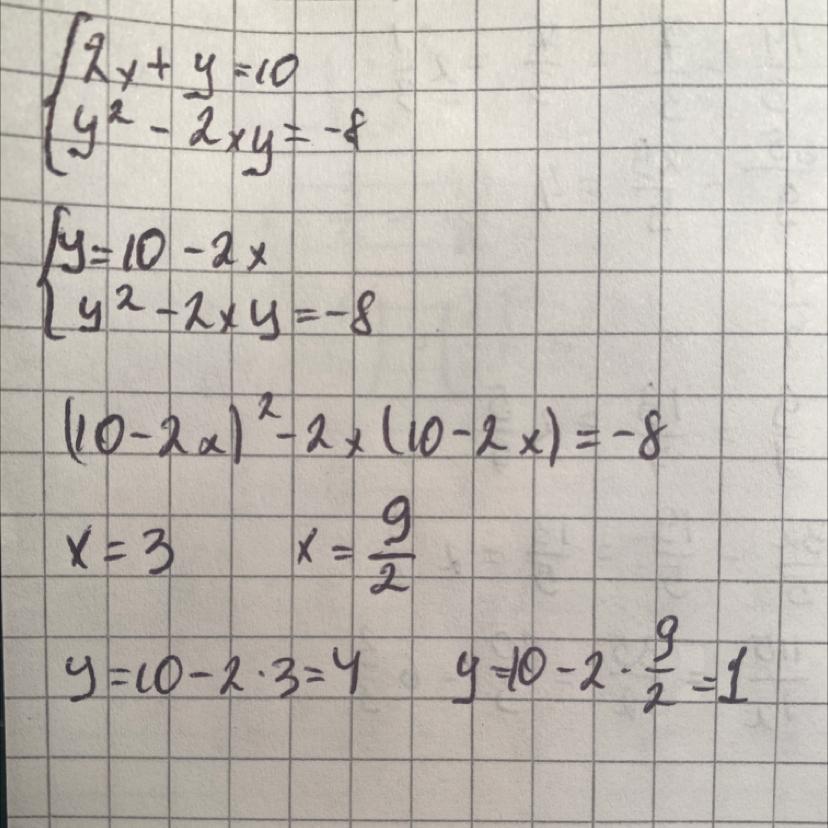 {2x + y = 10
{y² - 2xy = -8
{y = 10 - 2x
{y² - 2xy = -8
(10 - 2x)² - 2x(10 - 2x) = -8
x = 3 x = 9/2
y = 10 - 2 · 3 = 4 y = 10 - 2 · 9/2 = 1